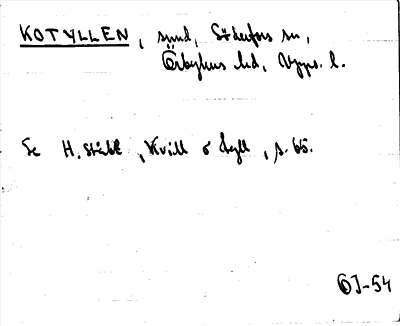 KOTYLLEN, sund, Söderfors sn,
Örbyhus hd, Upps. l.
Se H. Ståhl, Kvill o tyll, s. 65.
OJ-54